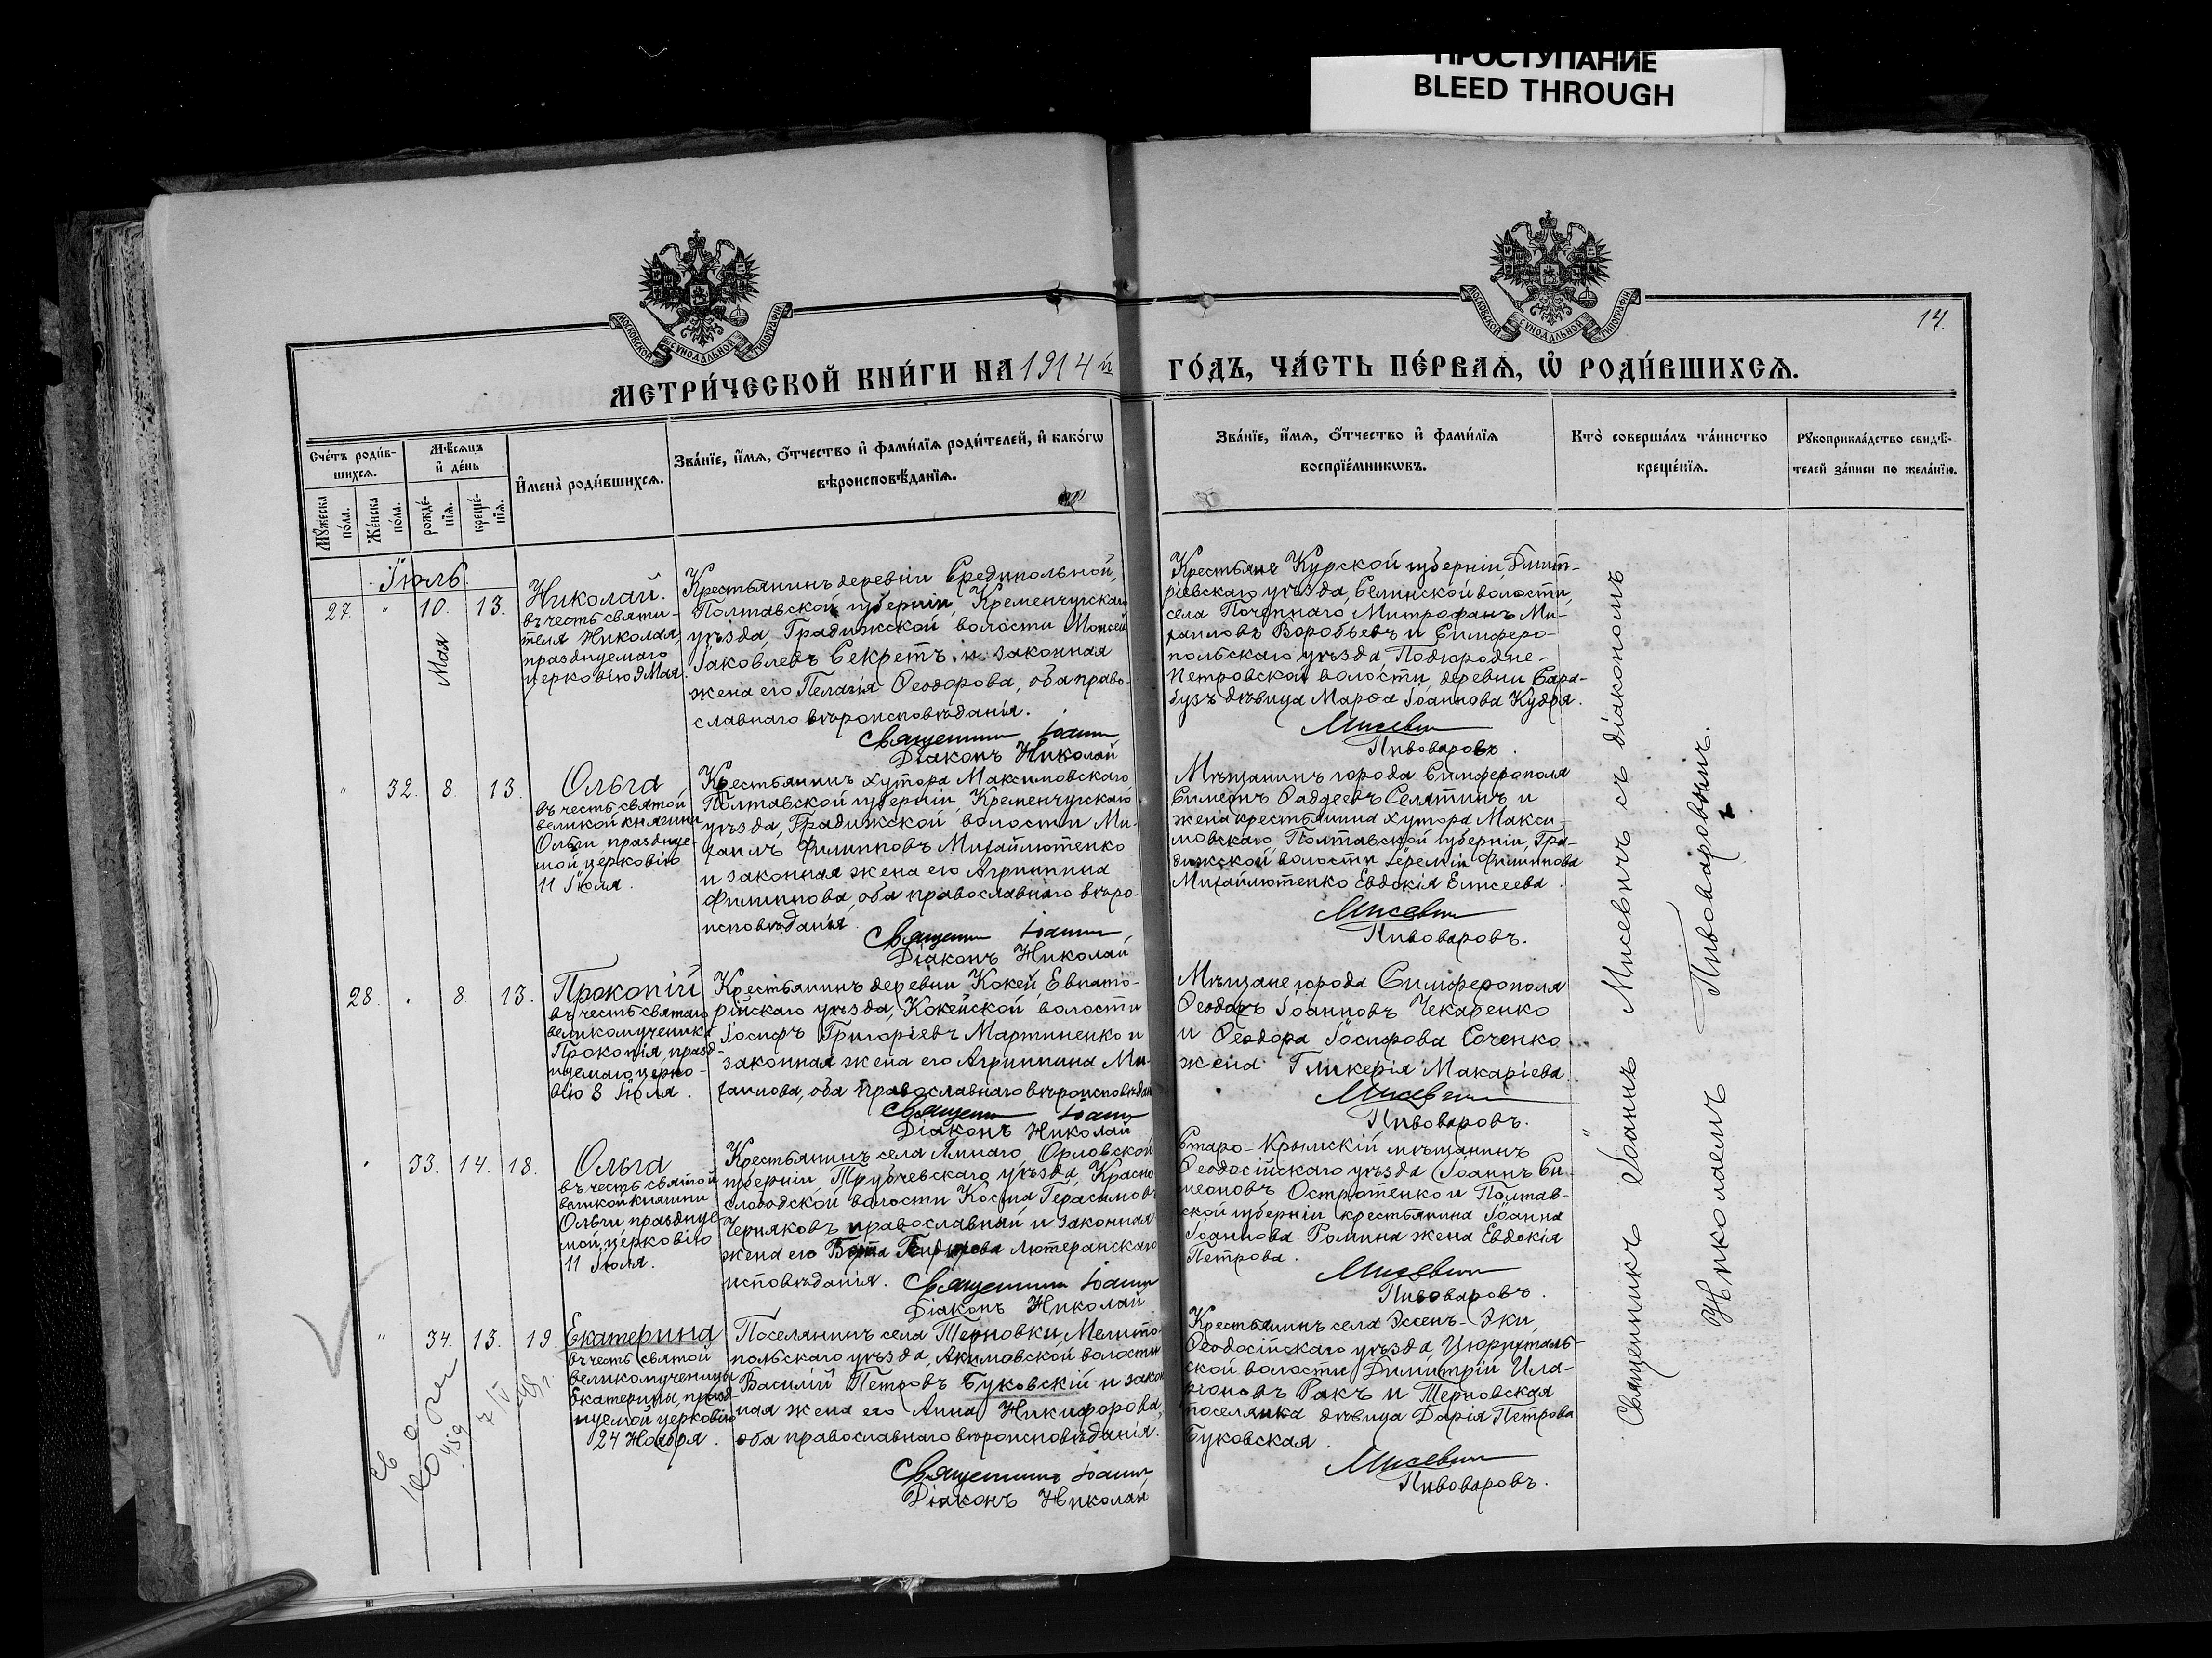 ПРОСТУПАНИЕ
BLEED THROUGH
14.
МОСКОВСКОЙ СѴНОДАЛЬНОЙ ТИПОГРАФІИ
МОСКОВСКОЙ СѴНОДАЛЬНОЙ ТИПОГРАФІИ
МЕТРИ́ЧЕСКОЙ КНИ́ГИ НА 1914 й ГО́ДЪ, ЧА́СТЬ ПЕ́РВАѦ, Ѡ҆ РОДИ́ВШИХСѦ.
Сче́тъ роди́в-
шихсѧ.
Мѣ́сѧцъ
и҆ де́нь
И҆мена̀ роди́вшихсѧ.
Зва́нїе, и҆́мѧ, ѻ҆́тчество и҆ фами́лїѧ роди́телей, и҆ како́гѡ
вѣроисповѣ́данїѧ.
Зва́нїе, и҆́мѧ, ѻ҆́тчество и҆ фами́лїѧ
воспрїе́мникѡвъ.
Кто̀ соверша́лъ та́инство
креще́нїѧ.
Рꙋкоприкла́дство свидѣ́-
телей за́писи по жела́нїю.
Мꙋ́жеска
по́ла.
Же́нска
по́ла.
рожде́-
нїѧ.
креще́-
нїѧ.
Іюль
27. " 10. 13.
Мая
Николай.
въ честь святи-
теля Николая
празднуемаго
церковію 9 Мая.
Крестьянинъ деревни Средипольной,
Полтавской губерніи, Кременчугскаго
уѣзда, Градижской волости Моисей
Іаковлевъ Секретъ и законная
жена его Пелагія Ѳеодорова, оба право-
славнаго вѣроисповѣданія.
Священникъ Іоаннъ
Діаконъ Николай
Крестьяне Курской губерніи, Дмит-
ріевскаго уѣзда, Селинской волости,
села Почепнаго Митрофанъ Ми-
хаиловъ Воробьевъ и Симферо-
польскаго уѣзда, Подгородне-
Петровской волости, деревни Сара-
бузъ дѣвица Марѳа Іоаннова Кудря.
Мисевичъ
Пивоваровъ.
" 32. 8. 13.
Ольга
въ честь святой
великой княгини
Ольги, празднуе-
мой церковію
11 Іюля.
Крестьянинъ хутора Максимовскаго
Полтавской губерніи, Кременчугскаго
уѣзда, Градижской волости Ми-
хаилъ Филипповъ Михайлютенко
и законная жена его Агриппина
Филиппова, оба православнаго вѣро-
исповѣданія.
Священникъ Іоаннъ
Діаконъ Николай
Мѣщанинъ города Симферополя
Симеонъ Ѳаддеевъ Селятинъ и
жена крестьянина хутора Макси-
мовскаго, Полтавской губерніи, Гра-
дижской волости Іереміи Филиппова
Михайлютенко Евдокія Елисеева.
Мисевичъ
Пивоваровъ.
28. " 8. 13.
Прокопій
въ честь святаго
великомученика
Прокопія, празд-
нуемаго церко-
вію 8 Іюля.
Крестьянинъ деревни Кокей, Евпато-
рійскаго уѣзда, Кокейской волости
Іосифъ Григоріевъ Мартиненко и
законная жена его Агриппина Ми-
хаилова, оба православнаго вѣроисповѣдан
Священникъ Іоаннъ
Діаконъ Николай
Мѣщане города Симферополя
Ѳеодоръ Іоанновъ Чекаренко
и Ѳеодора Іосифова Соченко
жена Гликерія Макаріева.
Мисевичъ
Пивоваровъ.
" 33. 14. 18.
Ольга
въ честь святой
великой княгини
Ольги празднуе-
мой церковію
11 Іюля.
Крестьянинъ села Орловской
губерніи, Трубчевскаго уѣзда, Красно-
слободской волости Косма Герасимовъ
Черняковъ православный и законная
жена его лютеранскаго
исповѣданія. Священникъ Іоаннъ
Діаконъ Николай
Старо-Крымскій мѣщанинъ
Ѳеодосійскаго уѣзда Іоаннъ Си-
меоновъ Остротенко и Полтав-
ской губерніи крестьянина Іоанна
Іоаннова Ромина жена Евдокія
Петрова.
Мисевичъ
Пивоваровъ.
" 34. 13. 19.
Екатерина
въ честь святой
великомученицы
Екатерины, празд-
нуемой церковію
24 Ноября.
Поселянинъ села Терновки, Мелито-
польскаго уѣзда, Акимовской волости
Василій Петровъ Буковскій и закон
ная жена его Анна Никифорова,
оба православнаго вѣроисповѣданія.
Священникъ Іоаннъ
Діаконъ Николай
Крестьянинъ села Эссенъ-Эки,
Ѳеодосійскаго уѣзда, Цюрихталь-
ской волости Димитрій Ила-
ріоновъ Ракъ и Терновская
поселянка дѣвица Дарія Петрова
Буковская.
Мисевичъ
Пивоваровъ.
Священникъ Іоаннъ Мисевичъ съ діакономъ
Николаемъ Пивоваровымъ.